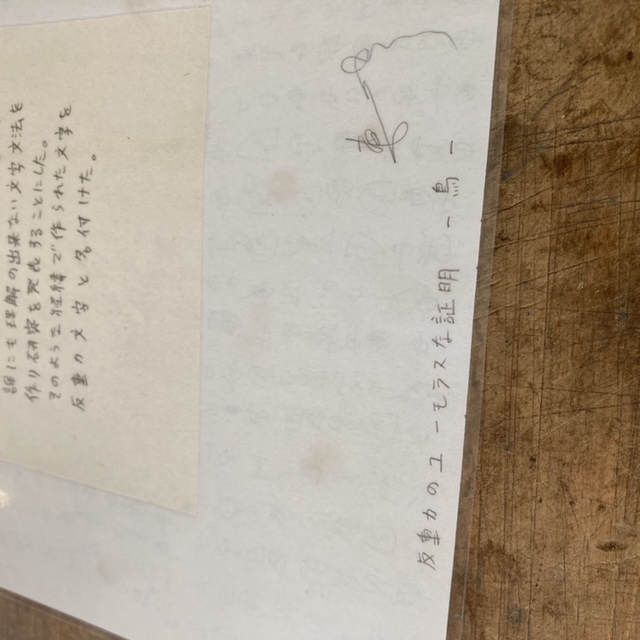 誰にも理解の出来ない文字文法を
作り 発表することにした。
そのような経緯で作られた文字を
反重力文字と名付けた。
反重力のユーモラスな証明 ー鳥ー